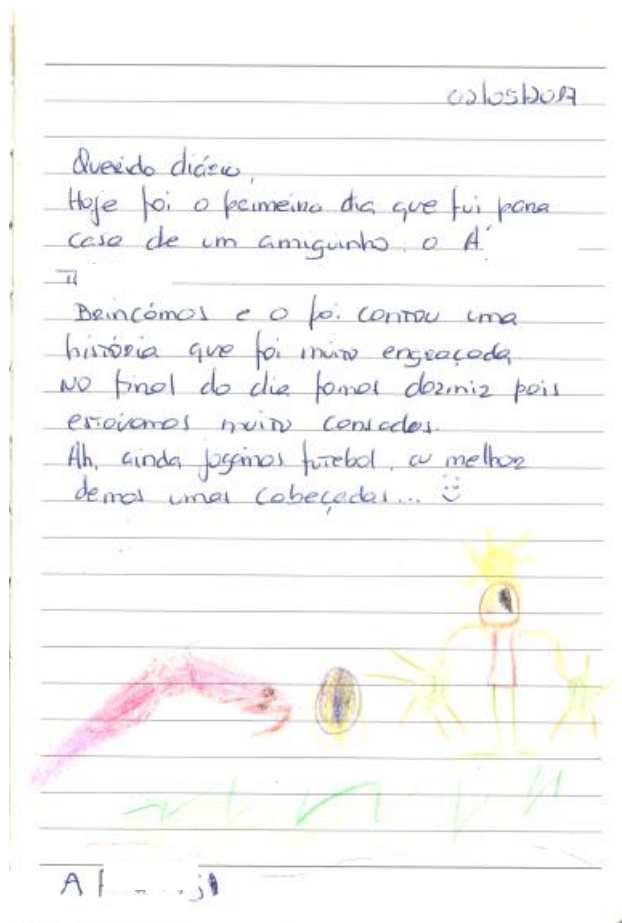 02/05/2017
Querido diário,
Hoje foi o primeiro dia que fui para
casa de um amiguinho, o A
Brincámos e o pai contou uma
história que foi muito engraçada.
No final do dia fomos dormir pois
estávamos muito cansados.
Ah, ainda jogámos futebol, ou melhor
demos umas cabeçadas...
A